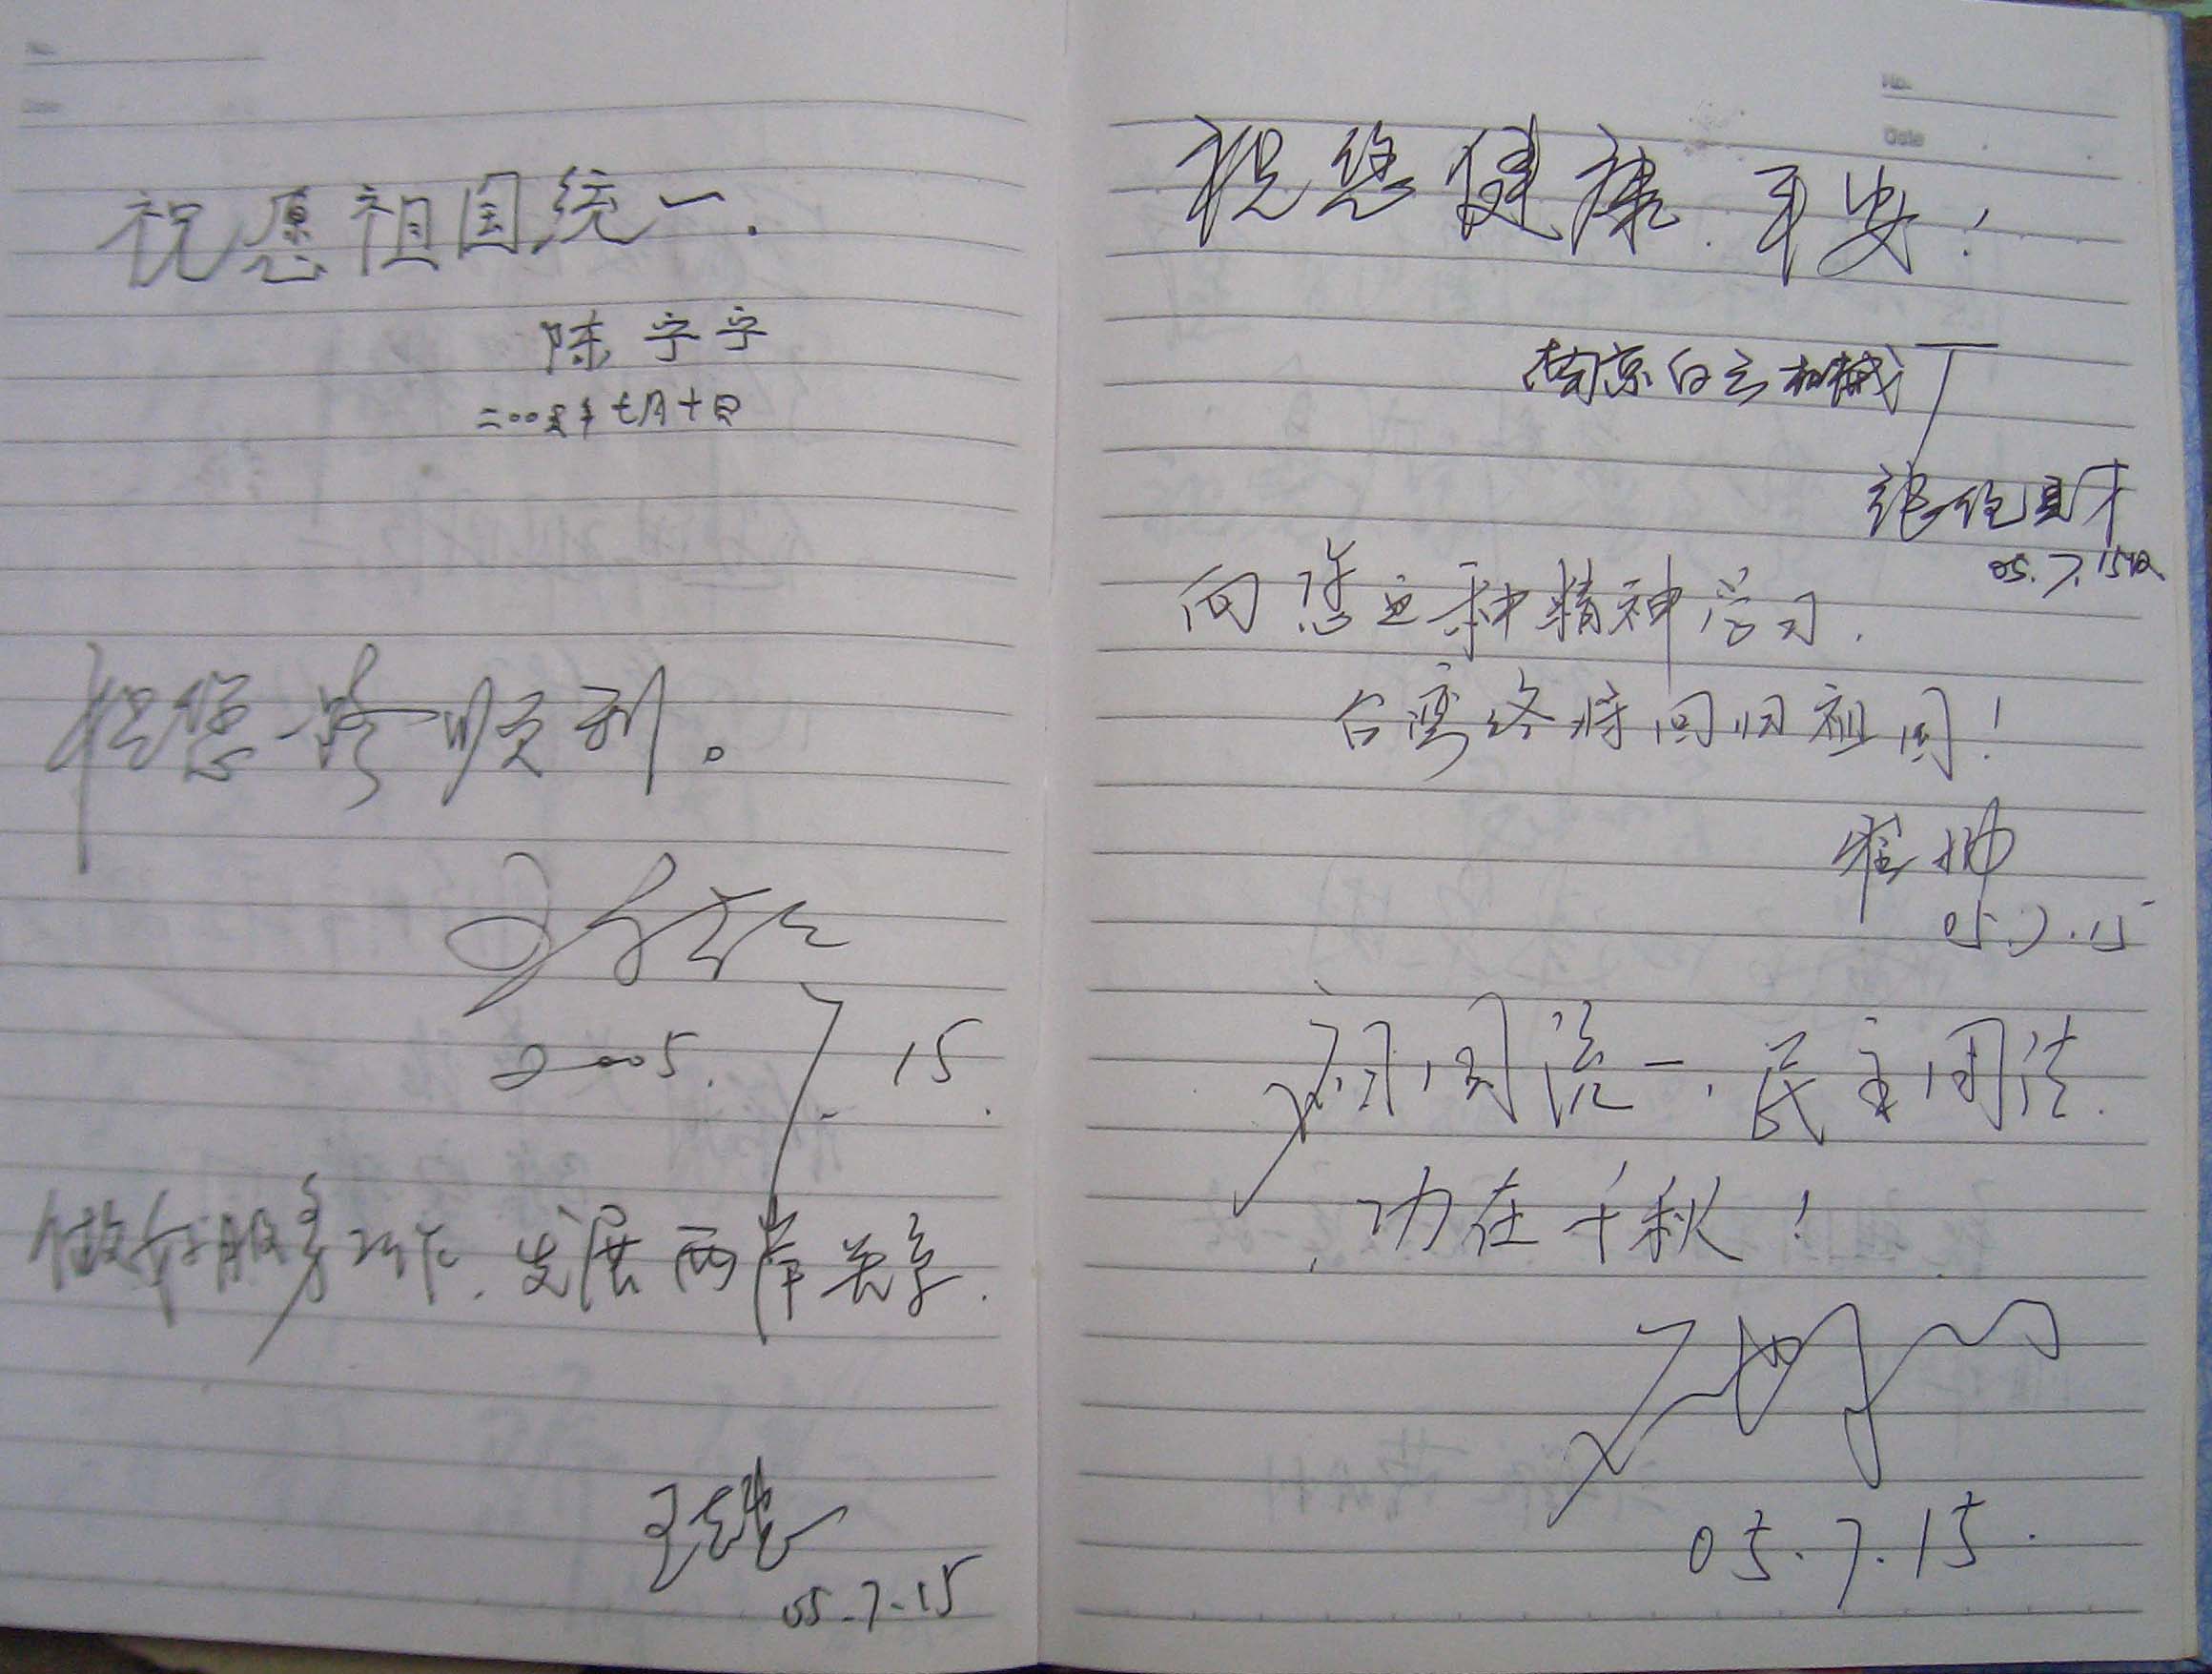 No.
Date
祝愿祖国统一.
陈宁宁
二〇〇五年七月十日
祝您一路顺利。
2005. 7. 15.
做好服务工作.发展两岸关系.
05.7.15
No.
Date
祝您健康.平安!
南京白云机械厂
05.7.15日
向您这种精神学习.
台湾终将回归祖国!
崔帅
05.7.15
祖国统一,民主团结.
功在千秋!
05.7.15.